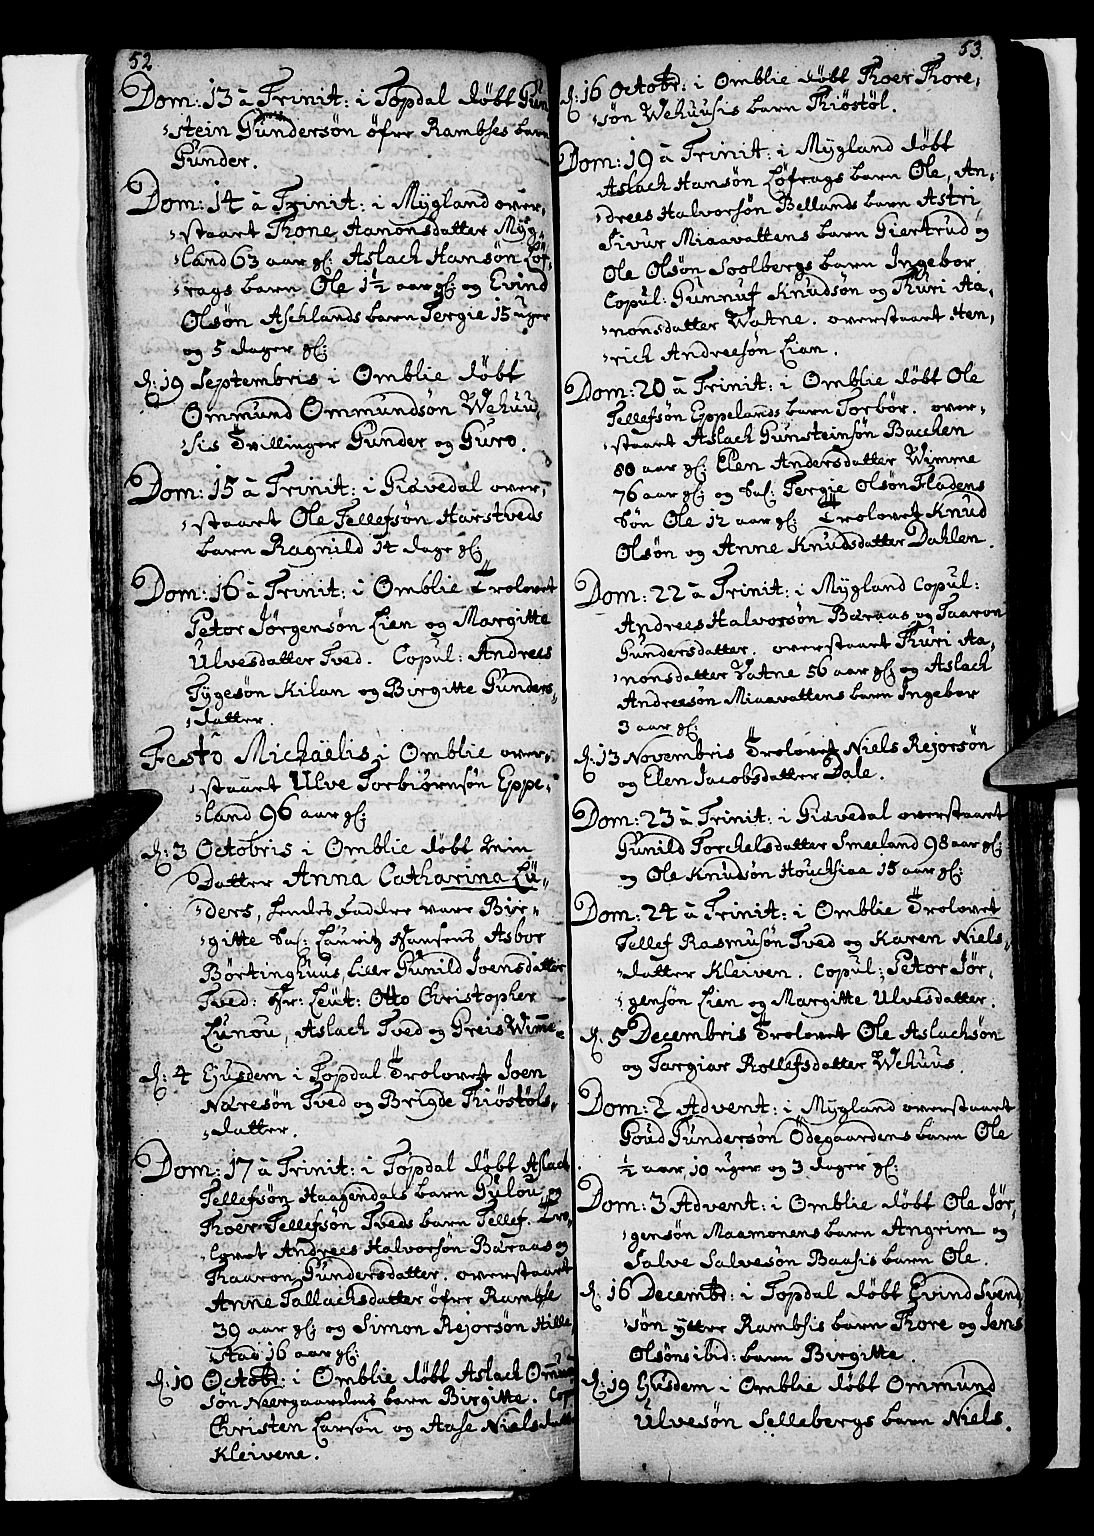 52
Dom: 13 à Trinit: i Topdal døbt Gun
stein Gundersøn øfre Rambses barn
Gunder.
Dom: 14 à Trinit: i Mygland over,
staart Thone Aanonsdatter Myg,
land 63 aar gl: Aslach Hansøn Løf,
rags barn Ole 1½ aar gl: og Evind
Olsøn Aschlands barn Tergie 15 uger
og 5 dager gl:
d: 19 Septembris i Omblie døbt
Ommund Ommundsøn Wehuu
sis Tvillinger Gunder og Guro.
Dom: 15 à Trinit: i Giøvedal over,
staart Ole Tellefsøn Harstveds
barn Ragnild 14 dage gl:
Dom: 16 à Trinit: i Omblie Trolovet
Petor Jørgensøn Lien og Margitte
Ulvesdatter Tved. Copul: Andrees
Tygesøn Kilan og Birgitte Gunders,
datter.
Festo Michaëlis i Omblie over,
staart Ulve Torbiørnsøn Eppe,
land 96 aar gl:
d: 3 Octobris i Omblie døbt min
Datter Anna Catharina Lü,
ders, hendes Faddre vare Bir,
gitte Sal: Lauritz Hansens Asbor
Børtinghuus, Lisse Gunild Joensdatter
Tved: Hr: Leut: Otto Christopher
Lunou, Aslach Tved og Greis Wimme
d: 4 Ejusdem i Topdal Trolovet Joen
Naresøn Tved og Brigde Thiøstøls,
datter.
Dom: 17 à Trinit: i Topdal døbt Aslach
Tellefsøn Haagendals barn Gulou og
Thoer Tellefsøn Tveds barn Tellef. Tro,
lovet Andrees Halvorsøn Baraas og
Thaaron Gundersdatter. overstaart
Anne Tallachsdatter øfre Rambse
39 aar gl: og Simon Rejorsøn Hille
stad 16 aar gl:
d: 10 Octobr: i Omblie døbt Aslach Ommund
søn Neergaardens barn Birgitte. Cop
Christen Larsøn og Aase Nielsdatter
Kleivene.
53.
d: 16 Octobr: i Omblie døbt Thoer Thore,
søn Wehuusis barn Thiøstøl.
Dom: 19 à Trinit: i Mygland døbt
Aslach Hansøn Løfrags barn Ole, An,
drees Halvorsøn Bellands barn Astri
Sivur Miaavattens barn Giertrud og
Ole Olsøn Soolbergs barn Ingebor
Copul: Gunnuf Knudsøn og Thuri Aa,
nonsdatter Watne. overstaart Hen,
rich Andreesøn Lian.
Dom: 20 à Trinit: i Omblie døbt Ole
Tellefsøn Eppelands barn Torbør. over,
staart Aslach Gunsteinsøn Bacchen
80 aar gl: Elen Andersdatter Wimme
76 aar gl: og Sal: Tergie Olsøn Fladens
Søn Ole 12 aar gl: Trolovet Knud
Olsøn og Anne Knudsdatter Dahlen.
Dom: 22 à Trinit: i Mygland Copul:
Andrees Halvorsøn Baraas og Taaron
Gundersdatter. overstaart Thuri Aa,
nonsdatter Vatne 56 aar gl: og Aslach
Andreesøn Miaavattens barn Ingebor
3 aar gl:
d: 13 Novembris Trolovet Niels Rejorsøn
og Elen Jacobsdatter Dale.
Dom: 23 à Trinit: i Giøvedal overstaart
Gunild Torchelsdatter Smeeland 98 aar gl:
og Ole Knudsøn Houchsiaa 15 aar gl:
Dom: 24 à Trinit: i Omblie Trolovet
Tellef Rasmusøn Tved og Karen Niels,
datter Kleiven. Copul: Petor Jør,
gensøn Lien og Margitte Ulvesdatter.
d: 5 Decembris Trolovet Ole Aslachsøn
og Targiar Rollefsdatter Wehuus.
Dom: 2 Advent: i Mygland overstaart
Goud Gundersøn Ødegaardens barn Ole
½ aar 10 uger og 3 dager gl:
Dom: 3 Advent: i Omblie døbt Ole Jør,
gensøn Maamonens barn Angrim og
Salve Salvesøn Baasis barn Ole.
d: 16 Decembr: i Topdal døbt Evind Svend
søn ytter Rambsis barn Thore og Jens
Olsøns ibid: barn Birgitte.
d: 19 Ejusdem i Omblie døbt Ommund
Ulvesøn Sellebergs barn Niels.